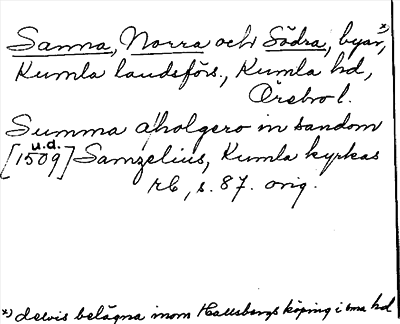 Sanna, Norra och Södra, byar, *)
Kumla landsförs., Kumla hd,
Örebro l.
Summa afholgero in sandom
u.d.
[1509] Samzelius, Kumla kyrkas
rb, s. 87. orig.
*) delvis belägna inom Hallsbergs köping i sma hd